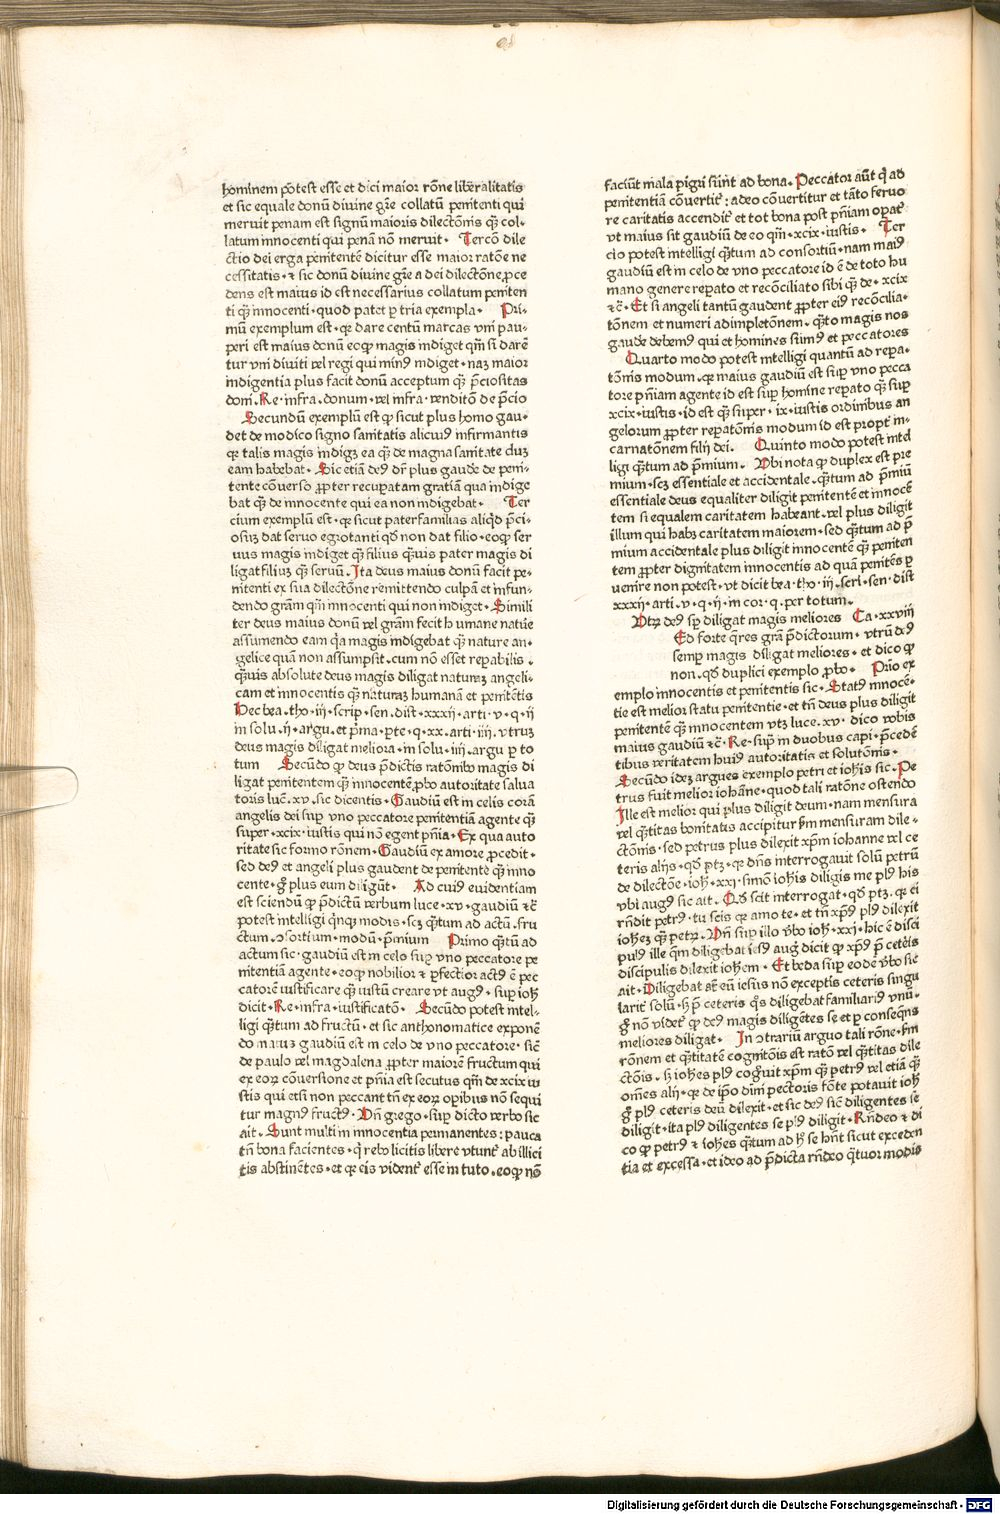 hominem põtest esse et dici maior rõne liberalitatis
et sic equale donũ diuine gr̃e collatũ penitenti qui
meruit penam est signũ maioris dilectõnis q̃ȝ col⸗
latum innocenti qui penã nõ meruit. Tercõ dile
ctio dei erga penitentẽ dicitur esse maior ratõe ne
cessitatis. ⁊ sic donũ diuine gr̃e a dei dilectõne ꝓce
dens est maius id est necessarius collatum peniten
ti q̃ȝ innocenti. quod patet ꝑ tria exempla. Pri⸗
mũ exemplum est. qꝫ dare centũ marcas vni pau⸗
peri est maius donũ eo qꝫ magis indiget qm̃ si darẽ
tur vni diuiti vel regi qui minꝰ indiget. naꝫ maior
indigentia plus facit donũ acceptum q̃ȝ p̃ciositas
doni. Re. infra. donum. vel infra. venditõ de p̃cio
Secundũ exemplũ est ꝙ sicut plus homo gau⸗
det de modico signo sanitatis alicuiꝰ infirmantis
qꝫ talis magis indigꝫ ea q̃ȝ de magna sanitate duꝫ
eam habebat. Sic etiã deꝰ dr̃ plus gaude de peni⸗
tente cõuerso ꝓpter recuꝑatam gratiã qua indige
bat q̃ȝ de innocente qui ea non indigebat. Ter
cium exemplũ est. qꝫ sicut paterfamilias aliqd̃ p̃ci⸗
osuꝫ dat seruo egrotanti qd̃ non dat filio. eo qꝫ ser
uus magis indiget q̃ȝ filius q̃ȝuis pater magis di
ligat filiuꝫ q̃ȝ seruũ. Ita deus maius donũ facit pe⸗
nitenti ex sua dilectõne remittendo culpã et infun⸗
dendo gr̃am qm̃ innocenti qui non indiget. Simili
ter deus maius donũ vel gr̃am fecit hͦ vmane natu̅e
assumendo eam q̃a magis indigebat q̃ȝ nature an⸗
gelice quã non assumpsit. cum nõ esset reꝑabilis.
q̃ȝuis absolute deus magis diligat naturaꝫ angeli⸗
cam et innocentis q̃ȝ naturaꝫ humanã et penitẽtis
Hec bea. tho. iij. scrip. sen. dist. xxxij. arti. v. q. ij
in solu. ij. argu. et p̃ma. ꝑte. q. xx. arti. iiij. vtruꝫ
deus magis diligat meliora. in solu. iiij. argu ꝑ to
tum Secũdo ꝙ deus p̃dictis ratõnibꝰ magis di
ligat penitentem q̃ȝ innocentẽ ꝓbo autoritate salua
toris luc̃. xv. sic dicentis. Gaudiũ est in celis corã
angelis dei suꝑ vno peccatore penitentiã agente q̃ȝ
super. xcix. iustis qui nõ egent pñia. Ex qua auto
ritate sic formo rõnem. Gaudiũ ex amore ꝓcedit.
sed deꝰ et angeli plus gaudent de penitente q̃ȝ inno
cente. g̊ plus eum diligũt. Ad cuiꝰ euidentiam
est sciendũ ꝙ p̃dictũ verbum luce. xv. gaudiũ ⁊c̃
potest intelligi q̃nqꝫ modis. scꝫ q̃tum ad actũ. fru
ctum. ꝯsortium. modũ. p̃mium Primo q̃tũ ad
actum sic. gaudiũ est in celo suꝑ vno peccatore pe
nitentiã agente. eo qꝫ nobilior ⁊ ꝑfectior actꝰ ẽ pec
catorẽ iustificare q̃ȝ iustũ creare vt augꝰ. suꝑ ioh̃
dicit. Re. infra. iustificatõ. Secũdo potest intel⸗
ligi q̃tum ad fructũ. et sic anthonomatice exponẽ
do maius gaudiũ est in celo de vno peccatore. sic̃
de paulo vel magdalena ꝓpter maiorẽ fructum qui
ex eoꝝ cõuersione et pñia est secutus qm̃ de xcix iu
stis qui etsi non peccant tñ ex eoꝝ oꝑibus nõ sequi
tur magnꝰ fructꝰ. Vñ grego. suꝑ dicto verbo sic
ait. Sunt multi in innocentia permanentes: pauca
tñ bona facientes. q̃ rebꝰ licitis libere vtunt̃ ab illici
tis abstinẽtes. et qꝫ eis vident̃ esse in tuto. eo qꝫ nõ
faciũt mala pigri sũnt ad bona. Peccator aũt q̃ ad
penitentiã cõuertit̃: adeo cõuertitur et tãto feruo
re caritatis accendit̃ et tot bona post pñiam oꝑat̃
vt maius sit gaudiũ de eo qm̃. xcix. iustis. Ter
cio potest intelligi q̃tum ad consortiũ. nam maiꝰ
gaudiũ est in celo de vno peccatore id ẽ de toto hu
mano genere reꝑato et recõciliato sibi q̃ȝ de. xcix
⁊c̃. Et si angeli tantũ gaudent ꝓpter eiꝰ recõcilia⸗
tõnem et numeri adimpletõnem. q̃to magis nos
gaude debemꝰ qui et homines sumꝰ et peccatores
Quarto modo potest intelligi quantũ ad reꝑa⸗
tõnis modum. qꝫ maius gaudiũ est suꝑ vno pecca
tore pñiam agente id est suꝑ homine reꝑato q̃ȝ suꝑ
xcix. iustis. id est q̃ȝ super. ix. iustis ordinibus an
gelorum ꝓpter reꝑatõnis modum id est propt̃ in⸗
carnatõnem filij dei. Quinto modo potest intel
ligi q̃tum ad p̃mium. Vbi nota ꝙ duplex est pre
mium. scꝫ essentiale et accidentale. q̃tum ad p̃miũ
essentiale deus equaliter diligit penitentẽ et innocẽ
tem si equalem caritatem habeant. vel plus diligit
illum qui habꝫ caritatem maiorem. sed q̃tum ad p̃
mium accidentale plus diligit innocentẽ q̃ȝ peniten
tem ꝓpter dignitatem innocentis ad quã penitẽs ꝑ
uenire non potest. vt dicit bea. tho. iij. scri. sen. dist
xxxij. arti. v. q. ij. in cor. q. per totum.
Vtꝝ deꝰ sꝑ diligat magis meliores Ca. xxviij
Sed forte q̃res gr̃a p̃dictorum. vtrũ deꝰ
semꝑ magis diligat meliores. et dico ꝙ
non. qd̃ duplici exemplo ꝓbo. Primo ex
emplo innocentis et penitentis sic. Statꝰ innocẽ⸗
tie est melior statu penitentie. et tñ deus plus diligit
penitentẽ q̃ȝ innocentem vtꝫ luce. xv. dico vobis
maius gaudiũ ⁊c̃. Re. suꝑ in duobus capi. p̃cedẽ
tibus veritatem huiꝰ autoritatis et solutõnis.
Secũdo ideꝫ argues exemplo petri et ioh̃is sic. Pe
trus fuit melior iohãne. quod tali ratõne ostendo
Ille est melior qui plus diligit deum. nam mensura
vel q̃titas bonitatis accipitur ẜm mensuram dile⸗
ctõnis. sed petrus plus dilexit xp̃m iohanne vel ce
teris alijs. qd̃ ptꝫ. qꝫ dñs interrogauit solũ petrũ
de dilectõe. ioh̃. xxi. simõ ioh̃is diligis me plꝰ his
vbi augꝰ sic ait. Qd̃ scit interrogat. qd̃ ptꝫ. qꝫ ei
rñdit petrꝰ. tu scis qꝫ amo te. et tñ xp̃ꝰ plꝰ dilexit
ioh̃eꝫ q̃ȝ petꝝ. Vñ suꝑ illo v̾bo ioh̃. xxi. hic ẽ disci
pulꝰ ille q̃m diligebat iesꝰ augꝰ dicit ꝙ xp̃ꝰ p̃ cetẽis
discipulis dilexit ioh̃em. Et beda suꝑ eodẽ v̾bo sic
ait. Diligebat aũt eũ iesus nõ exceptis ceteris singu
larit̃ solũ. sꝫ p̃ ceteris q̃s diligebat familiariꝰ vnũ.
g̊ nõ videt̃ ꝙ deꝰ magis diligẽtes se et ꝑ conseq̃ns
meliores diligat. In ꝯtrariũ arguo tali rõne. ẜm
rõnem et q̃titatẽ cognitõis est ratõ vel q̃titas dile
ctõis. sꝫ ioh̃es plꝰ cogͦuit xp̃m q̃ȝ petrꝰ vel etiã q̃ȝ
om̃es alij. qꝫ de ip̃o dm̃ pectoris fõte potauit ioh̃
g̊ plꝰ ceteris deũ dilexit. et sic deꝰ sic̃ diligentes se
diligit. ita plꝰ diligentes se plꝰ diligit. Rñdeo ⁊ di
co ꝙ petrꝰ ⁊ ioh̃es q̃tum ad hͦ se hñt sicut exceden
tia et excessa. et ideo ad p̃dicta rñdeo q̃tuor modis
Digitalisierung gefördert durch die Deutsche Forschungsgemeinschaft - DFG